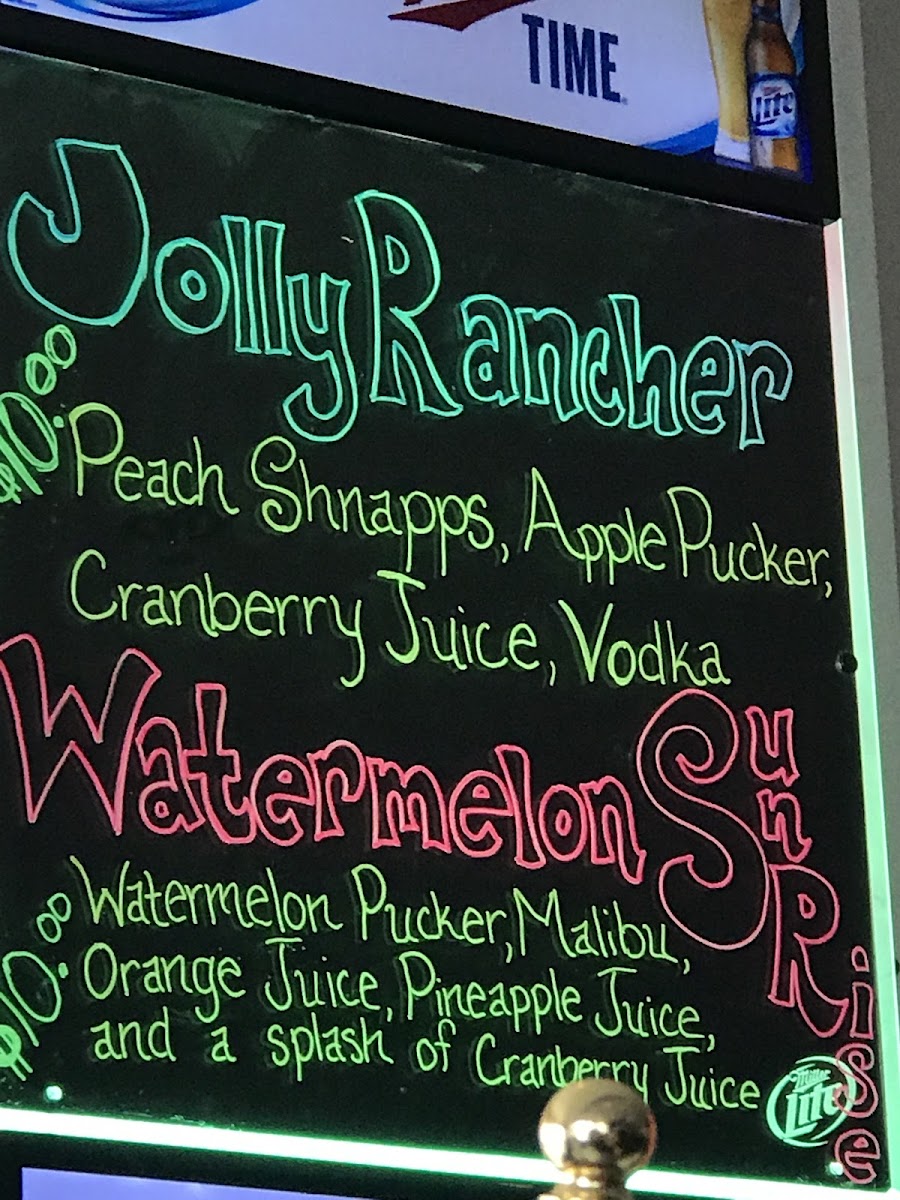 TIME
Miller
Lite
Jolly Rancher
$10.00
Peach Shnapps, Apple Pucker,
Cranberry Juice, Vodka
Watermelon SunRise
$10.00
Watermelon Pucker, Malibu,
Orange Juice, Pineapple Juice,
and a splash of Cranberry Juice
Miller
Lite